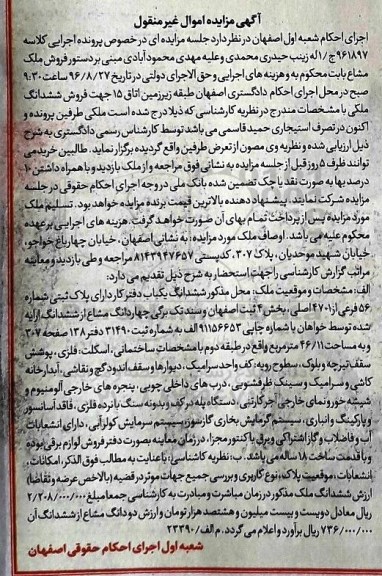 آگهی مزایده اموال غیر منقول
اجرای احکام شعبه اول اصفهان در نظر دارد جلسه مزایده ای در خصوص پرونده اجرایی کلاسه
۹۶۱۸۹۷ ج/۱ له زینب حیدری محمدی و علیه مهدی محمودآبادی مبنی بر دستور فروش ملک
مشاع بابت محکوم به و هزینه های اجرایی و حق الاجرای دولتی در تاریخ ۹۶/۸/۲۷ ساعت ۹:۳۰
صبح در محل اجرای احکام دادگستری اصفهان طبقه زیرزمین اتاق ۱۵ جهت فروش ششدانگ
ملکی با مشخصات مندرج در نظریه کارشناسی که ذیلا درج شده است ملکی طرفین پرونده و
اکنون در تصرف استیجاری حمید قاسمی می باشد توسط کارشناس رسمی دادگستری به شرح
ذیل ارزیابی شده و نظریه وی مصون از تعرض طرفین واقع گردیده برگزار نماید. طالبین خرید می
توانند ظرف ۵ روز قبل از جلسه مزایده به نشانی فوق مراجعه و از ملک بازدید و با همراه داشتن ۱۰
درصد بها به صورت نقد یا چک تضمین شده بانک ملی در وجه اجرای احکام حقوقی در جلسه
مزایده شرکت نمایند. پیشنهاد دهنده بالاترین قیمت برنده مزایده خواهد بود. تسلیم ملک
مورد مزایده پس از پرداخت تمام بهای آن صورت خواهد گرفت. هزینه های اجرایی بر عهده
محکوم علیه می باشد. اوصاف ملک مورد مزایده: به نشانی اصفهان، خیابان چهارباغ خواجو،
خیابان شهید موحدیان، پلاک ۳۰۷، کدپستی ۸۱۴۳۹۴۷۶۵۷ مراجعه و طی بازدید و معاینه
مراتب گزارش کارشناسی را جهت استحضار به شرح ذیل تقدیم می دارد:
الف: مشخصات و موقعیت ملک: محل مذکور ششدانگ یکباب دفتر کار دارای پلاک ثبتی شماره
۵۶ فرعی از ۴۷۰۱ اصلی، بخش ۴ ثبت اصفهان و سند تک برگی چهاردانگ مشاع از ششدانگ ارایه
شده توسط خواهان با شماره چاپی ۹۱۱۵۶۶۵۳ الف به شماره ثبت ۳۱۴۹۰ دفتر ۱۳۸ صفحه ۳۰۷
و به مساحت ۴۶/۱۱ مترمربع واقع در طبقه دوم با مشخصات ساختمانی، اسکلت: فلزی، پوشش
سقف تیرچه و بلوک، سطوح رویه: کف واحد سرامیک، دیوارها و سقف اندود گچ و نقاشی، آبدارخانه
کاشی و سرامیک و سینک ظرفشویی، درب های داخلی چوبی، پنجره های خارجی آلومنیوم و
شیشه خور و نمای خارجی آجر کارتنی، دستگاه پله در کف و بدونه سنگ با نرده فلزی، فاقد آسانسور
و پارکینگ و انباری، سیستم گرمایش بخاری گازسوز، سیستم سرمایش کولرآبی، دارای انشعابات
آب و فاضلاب و گاز اشتراکی و برق با کنتور مجزا، در زمان معاینه بصورت دفتر فروش لوازم برقی بوده
و با قدمت ساخت ۱۸ ساله می باشد. ب: نظریه کارشناسی: با عنایت به مطالب فوق الذکر، امکانات:
انشعابات، موقعیت پلاک، نوع کاربری و بررسی جمیع جهات موثر در قضیه (بالاخص عرضه و تقاضا)
ارزش ششدانگ ملک مذکور در زمان مباشرت و مبادرت به کارشناسی جمعا مبلغ ۲/۲۰۸/۰۰۰/۰۰۰
ریال معادل دویست و بیست میلیون و هشتصد هزار تومان و ارزش دو دانگ مشاع از ششدانگ آن
۷۳۶/۰۰۰/۰۰۰ ریال برآورد و اعلام می گردد. م الف/۲۳۳۹۰
شعبه اول اجرای احکام حقوقی اصفهان